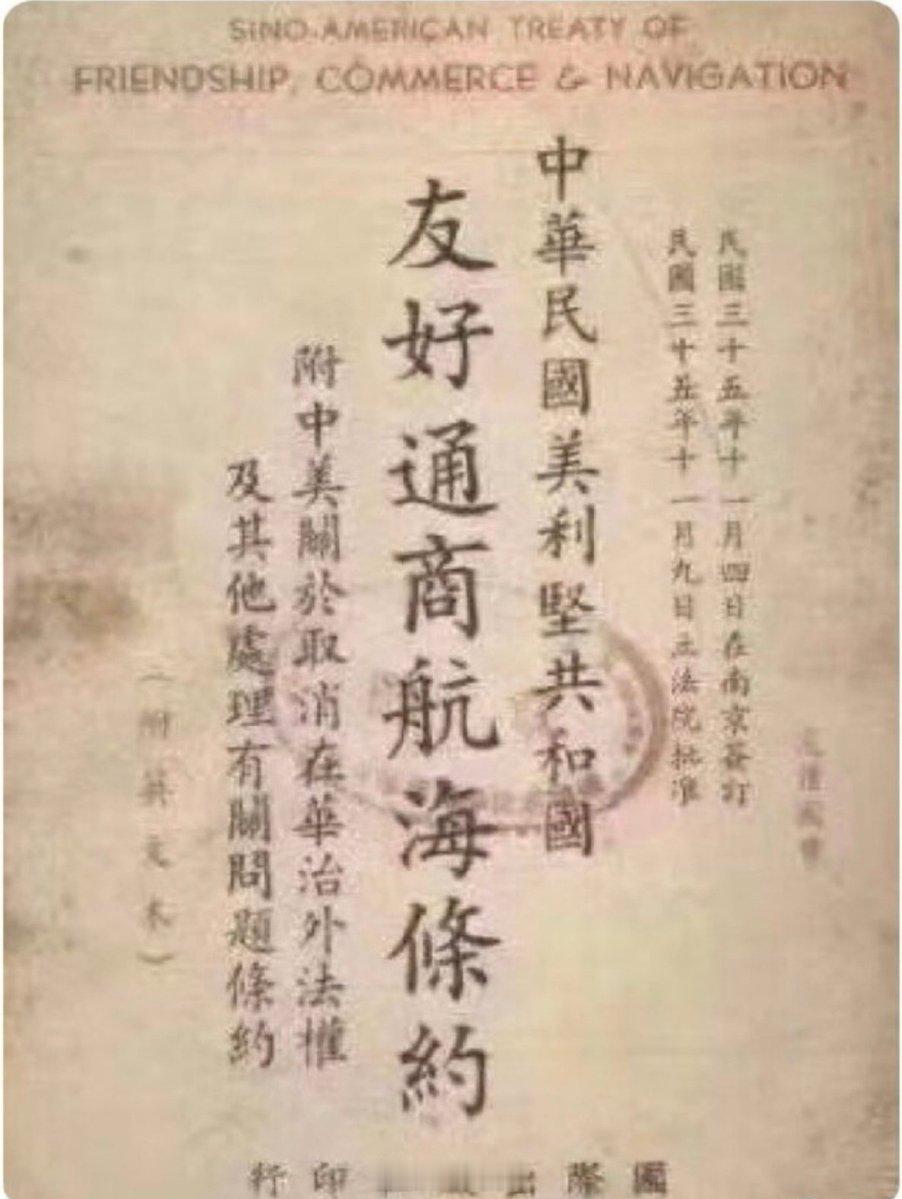 SINO-AMERICAN TREATY OF
FRIENDSHIP, COMMERCE & NAVIGATION
民國三十五年十一月四日在南京簽訂
民國三十五年十一月九日立法院批准
中華民國美利堅共和國
友好通商航海條約
附中美關於取消在華治外法權
及其他處理有關問題條約
(附英文本)
國際出版社印行